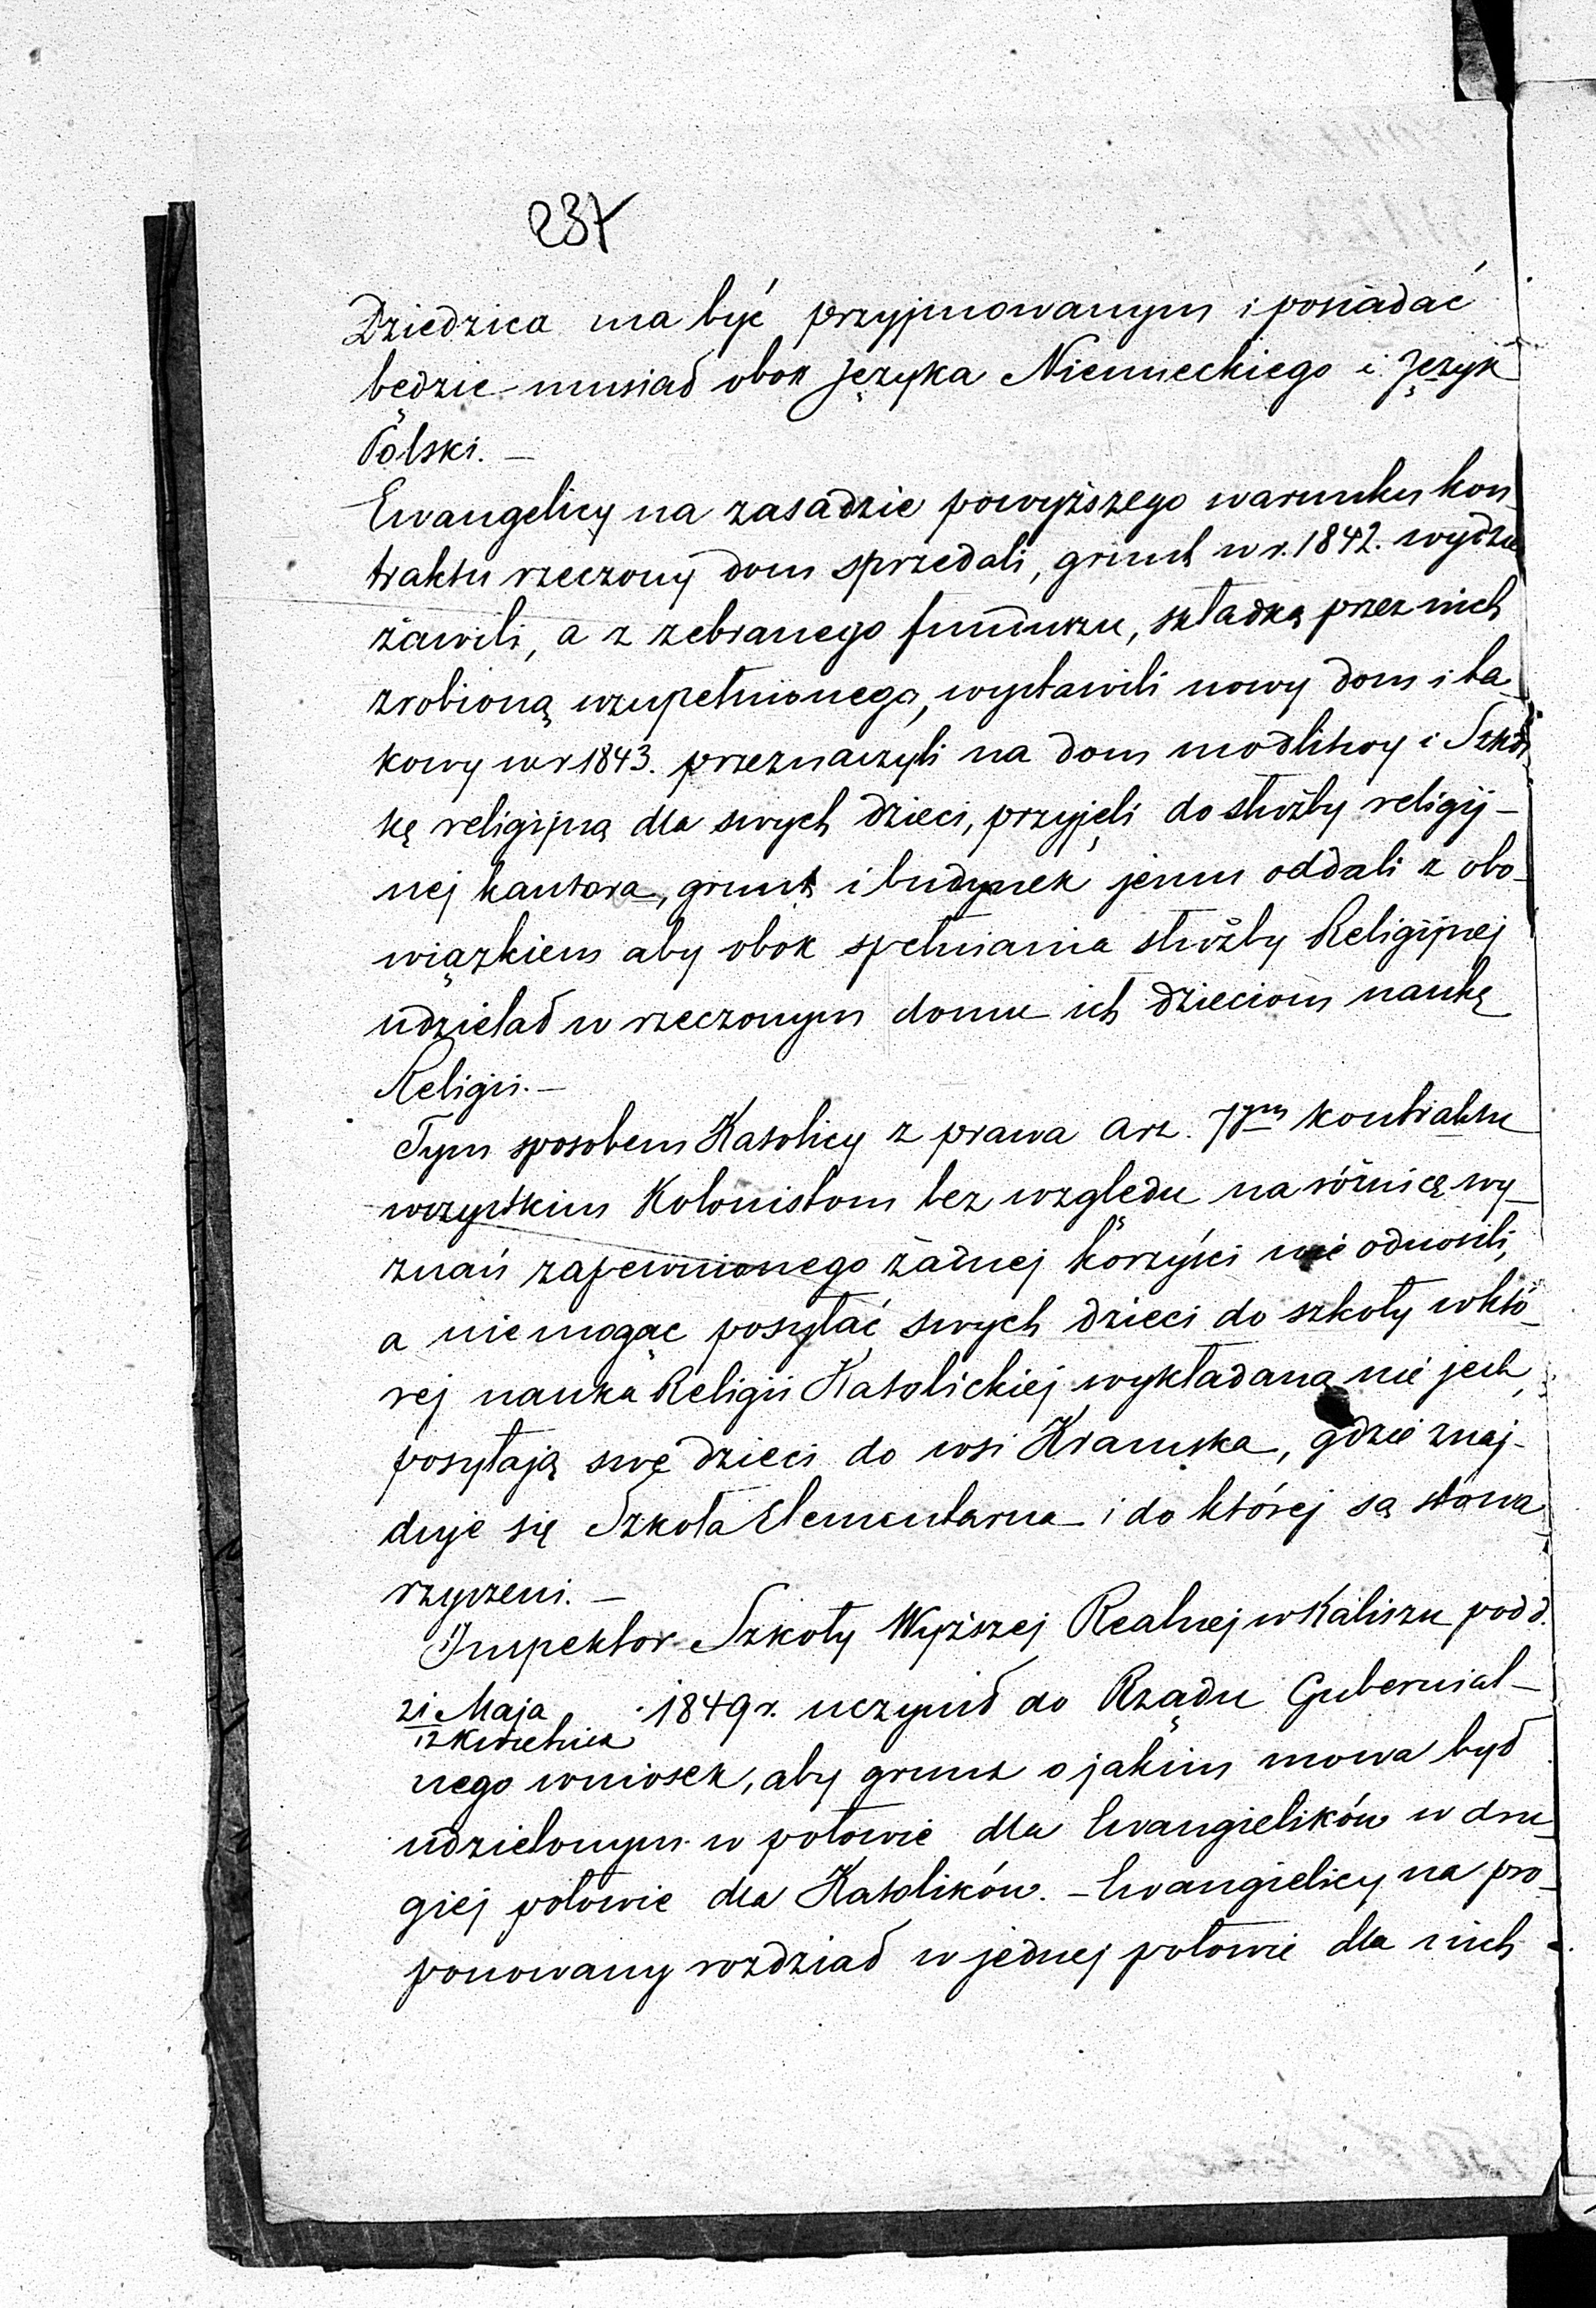 237
Dziedzica ma być przyjmowanym i posiadać
będzie musiał obok Języka Niemieckiego i Język
Polski. —
Ewangelicy na zasadzie powyższego warunku kon-
traktu rzeczony dom sprzedali, grunt w r. 1842. wydzier
żawili, a z zebranego funduszu, składką przez nich
zrobioną uzupełnionego, wystawili nowy dom i ta-
kowy w r 1843. przeznaczyli na dom modlitwy i Szkół
kę religijną dla swych dzieci, przyjęli do służby religij-
nej kantora, grunt i budynek jemu oddali z obo-
wiązkiem aby obok spełniania służby Religijnej
udzielał w rzeczonym domu ich dzieciom naukę
Religii. —
Tym sposobem Katolicy z prawa Art. 7ym kontraktu
wszystkim Kolonistom bez względu na różnicę wy-
znań zapewnionego żadnej korzyści nie odnosili,
a nie mogąc posyłać swych dzieci do szkoły w któ-
rej nauka Religii Katolickiej wykładaną nie jest,
posyłają swe dzieci do wsi Kramska, gdzie znaj-
duje się Szkoła Elementarna i do której są stowa-
rzyszeni. —
Inspektor Szkoły Wyższej Realnej w Kaliszu pod d.
21 Maja 1849 r. uczynił do Rządu Gubernial-
12 Kwietnia
nego wniosek, aby grunt o jakim mowa był
udzielonym w połowie dla Ewangielików w dru-
giej połowie dla Katolików. — Ewangielicy na pro-
ponowany rozdział w jednej połowie dla nich